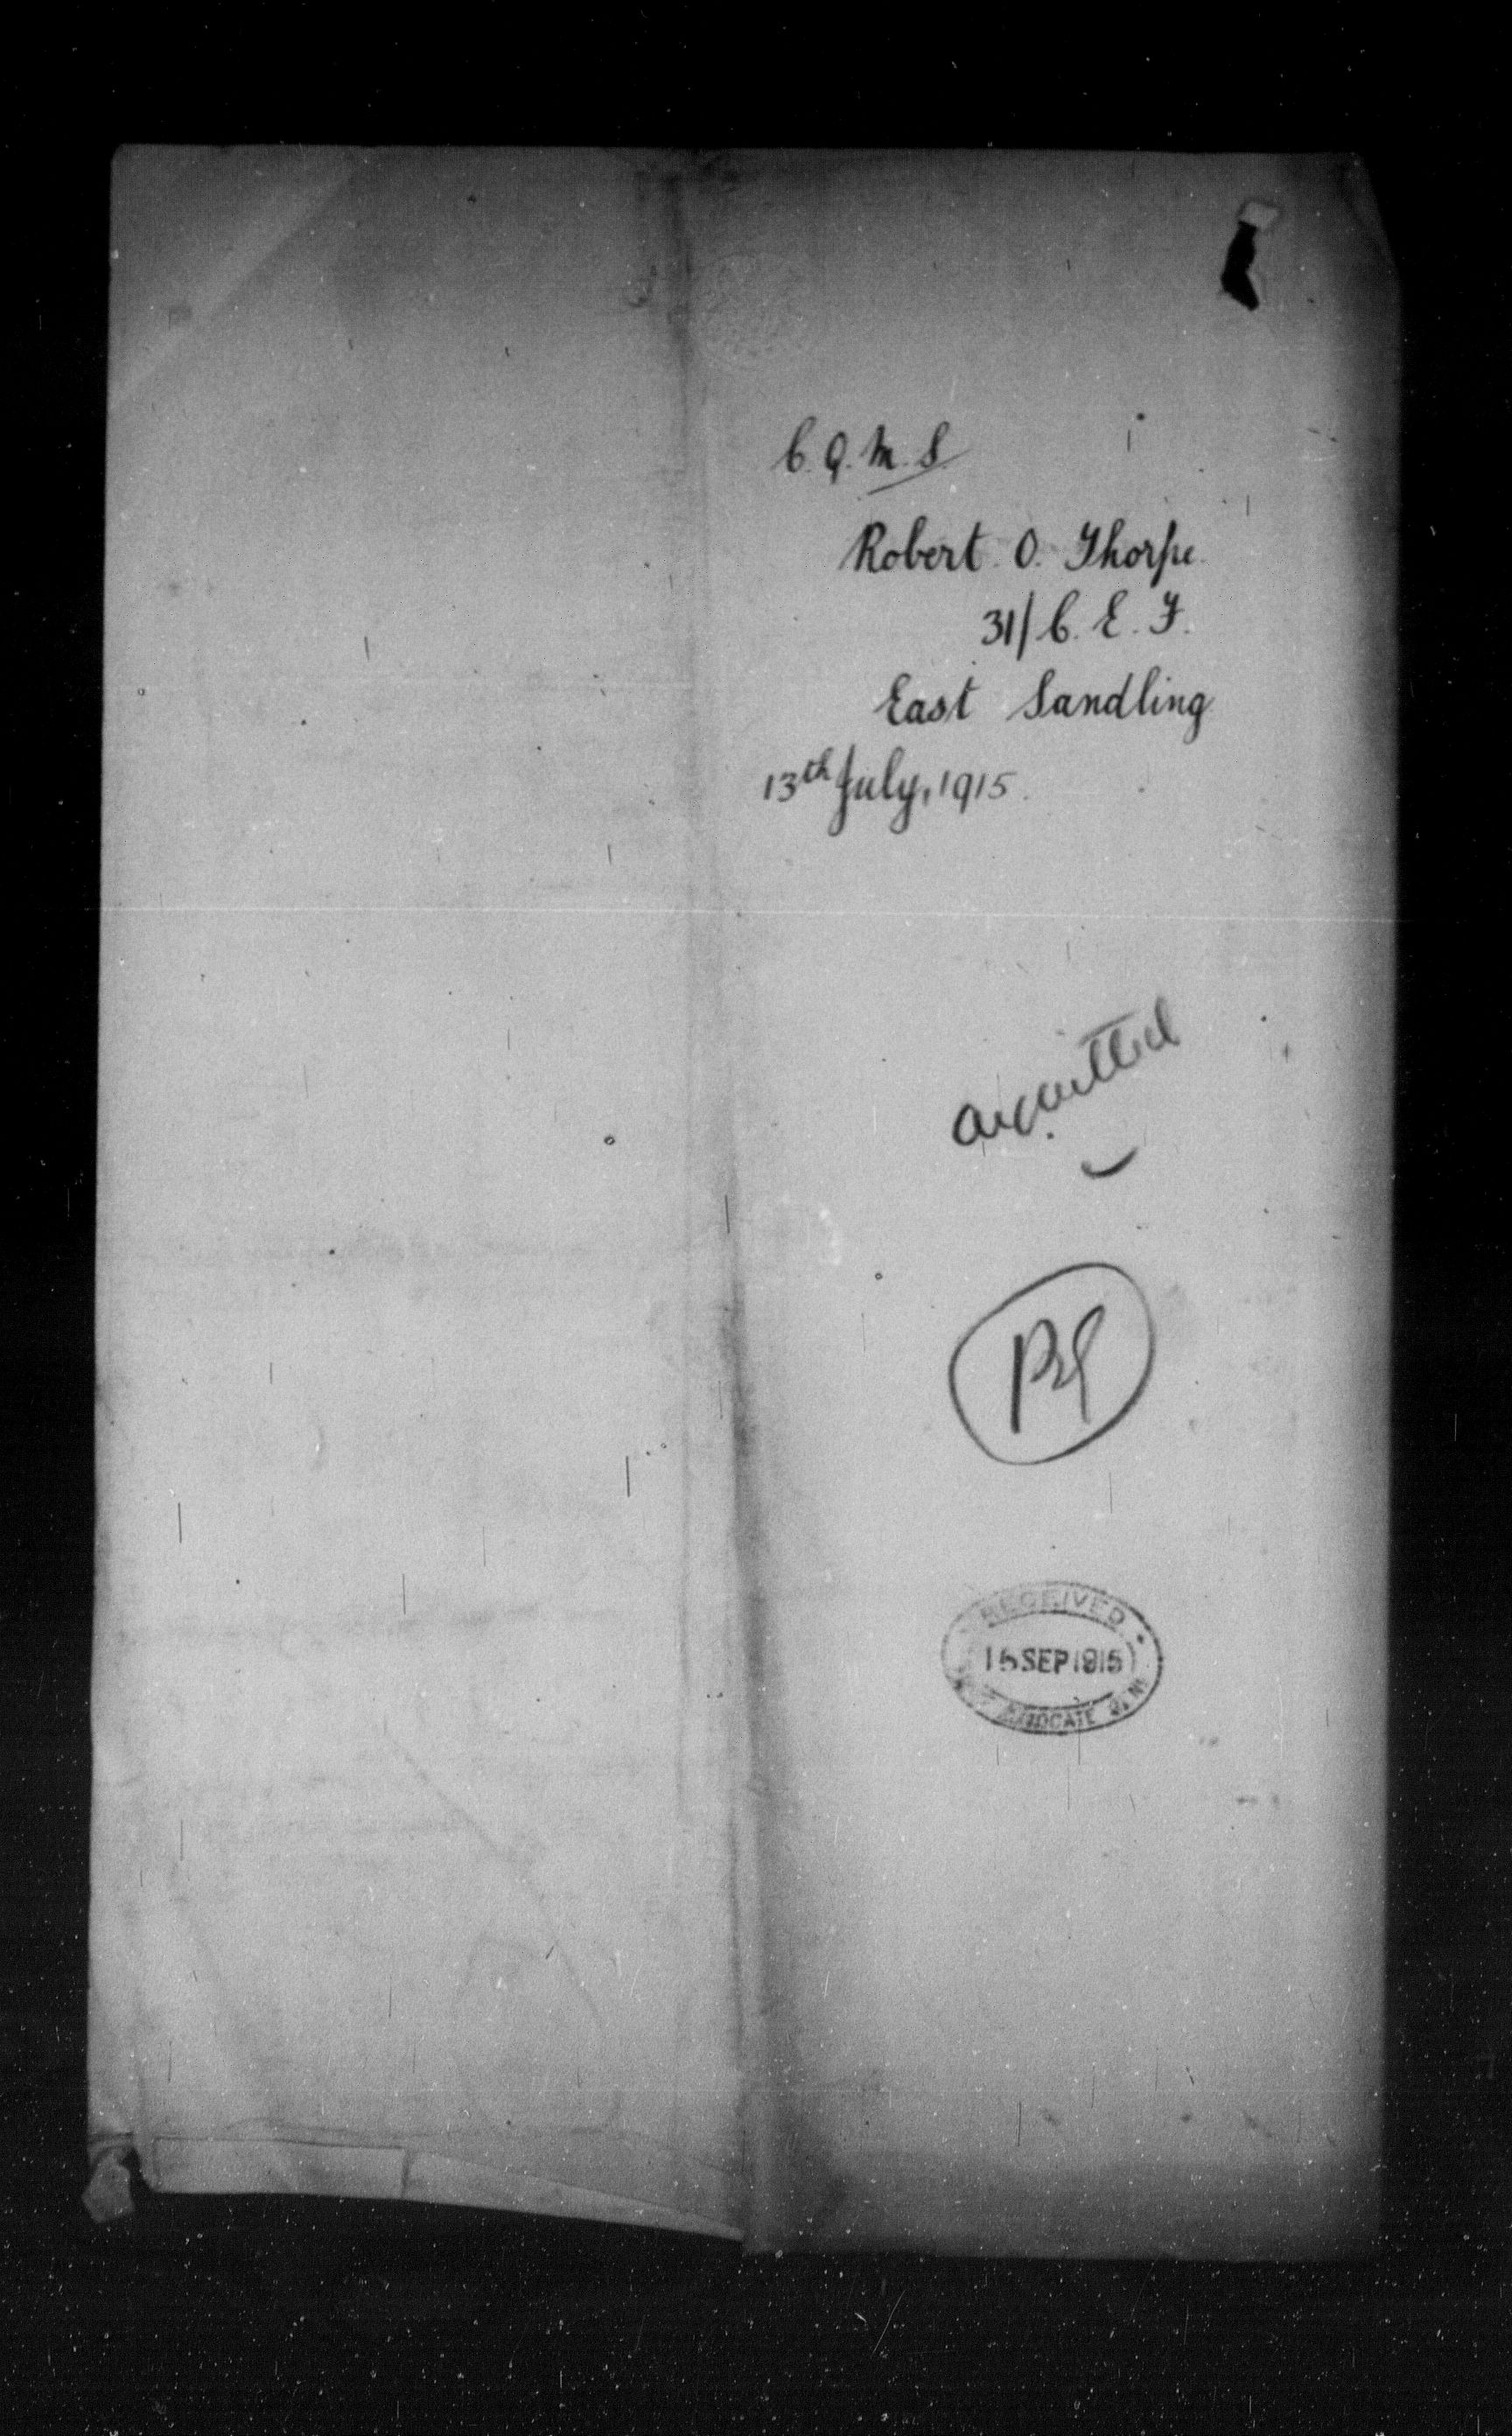 C.Q.M.S.
Robert. O. Thorpe.
31/C. E. F.
East Sandling
13th July, 1915.
acquitted
RECEIVED
15 SEP 1915
ADVOCATE GENL